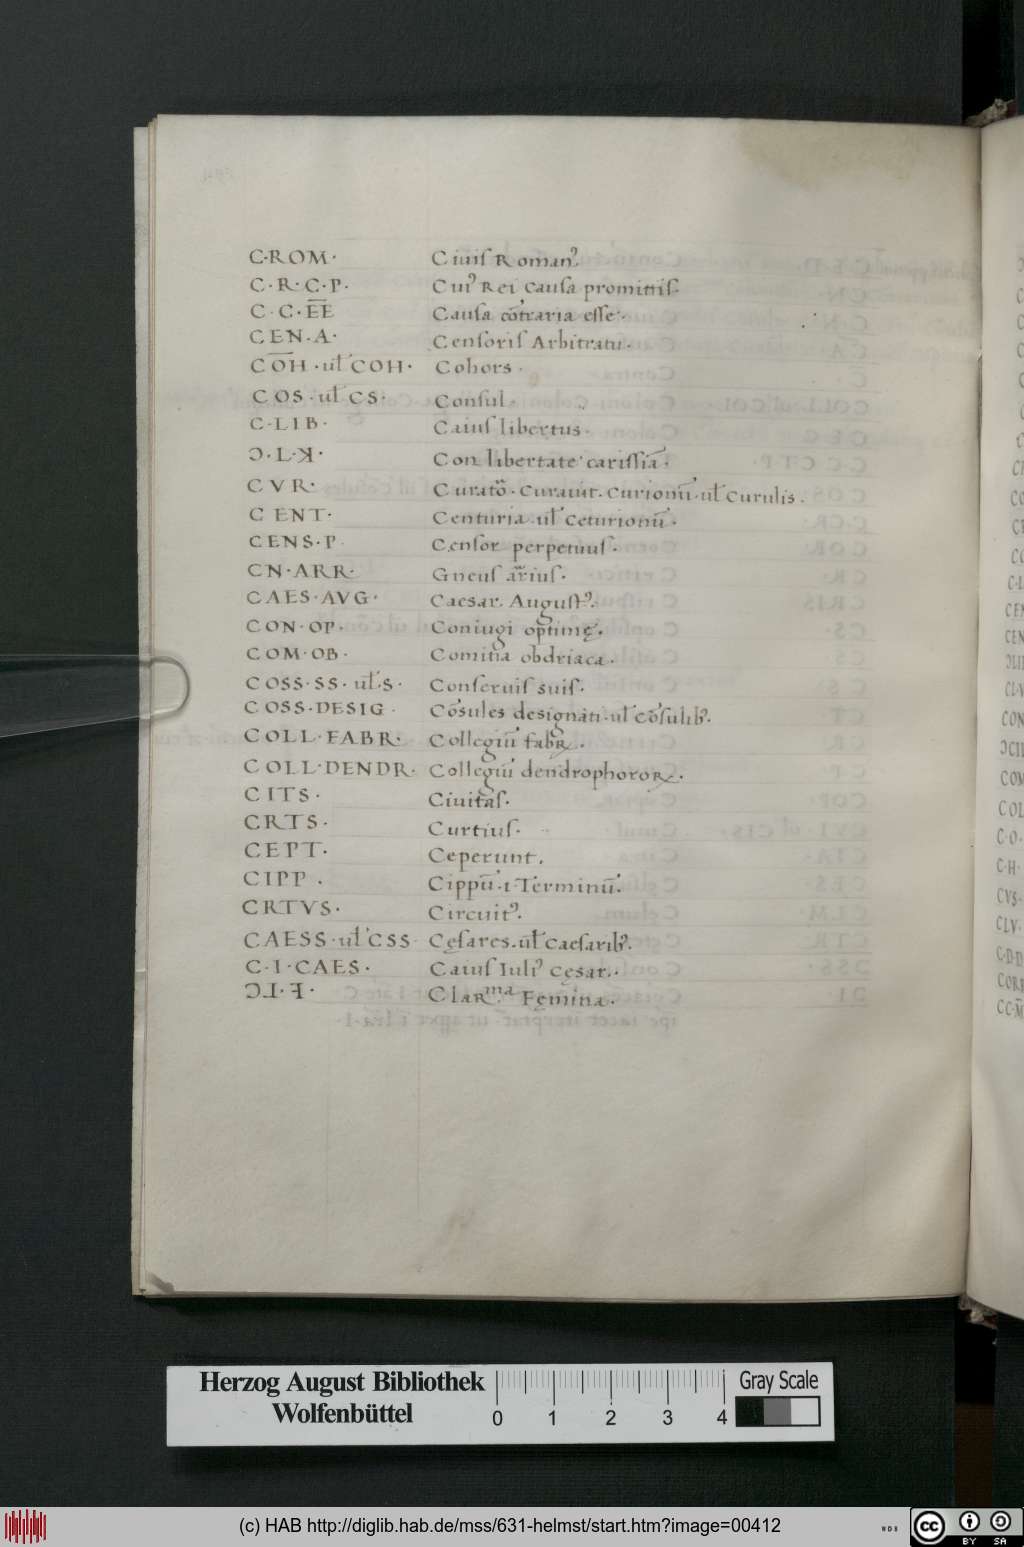 C·ROM· Ciuiſ Romanꝰ.
C·R·C·P· Cuiꝰ Rei cauſa promittiſ.
C·C·E̅E̅ Cauſa cōtraria eſſe·
CEN·A· Cenſoriſ Arbitratu·
CO̅H·ul̄ COH· Cohors·
COS·ul̄ CS· Conſul·
C·LIB· Caiuſ libertus·
Ɔ·L·ꓘ· Con libertate cariſſiā·
CVR· Curatō·Curaūt·Curionū·ul̄ Curulis.
CENT· Centuria·ul̄ Ceturionū·
CENS·P Cenſor perpetuuſ·
CN·ARR· Gneuſ ār̄iuſ·
CAES·AVG· Caesar. Auguſtꝰ.
CON·OP· Coniugi optimę.
COM·OB· Comitia obdriaca·
COSS·SS·ul̄·S· Conſeruiſ suiſ·
COSS·DESIG· Cōsules designati·ul̄ Cōſulibꝰ.
COLL·FABR· Collegiū fabꝝ.
COLL·DENDR· Collegiū dendrophoroꝝ.
CITS· Ciuitaſ·
CRTS· Curtiuſ·
CEPT· Ceperunt.
CIPP· Cippū·ı·Terminū.
CRTVS· Circuitꝰ.
CAESS·ul̄ CSS· Cęſares.ul̄ Caeſaribꝰ.
C·I·CAES· Caiuſ Iuliꝰ Cęsar.·
ƆI·ꟻ· Clarᵐᵃ Fęmina·
Herzog August Bibliothek
Wolfenbüttel
0 1 2 3 4
Gray Scale
(c) HAB http://diglib.hab.de/mss/631-helmst/start.htm?image=00412
WDB
cc BY SA